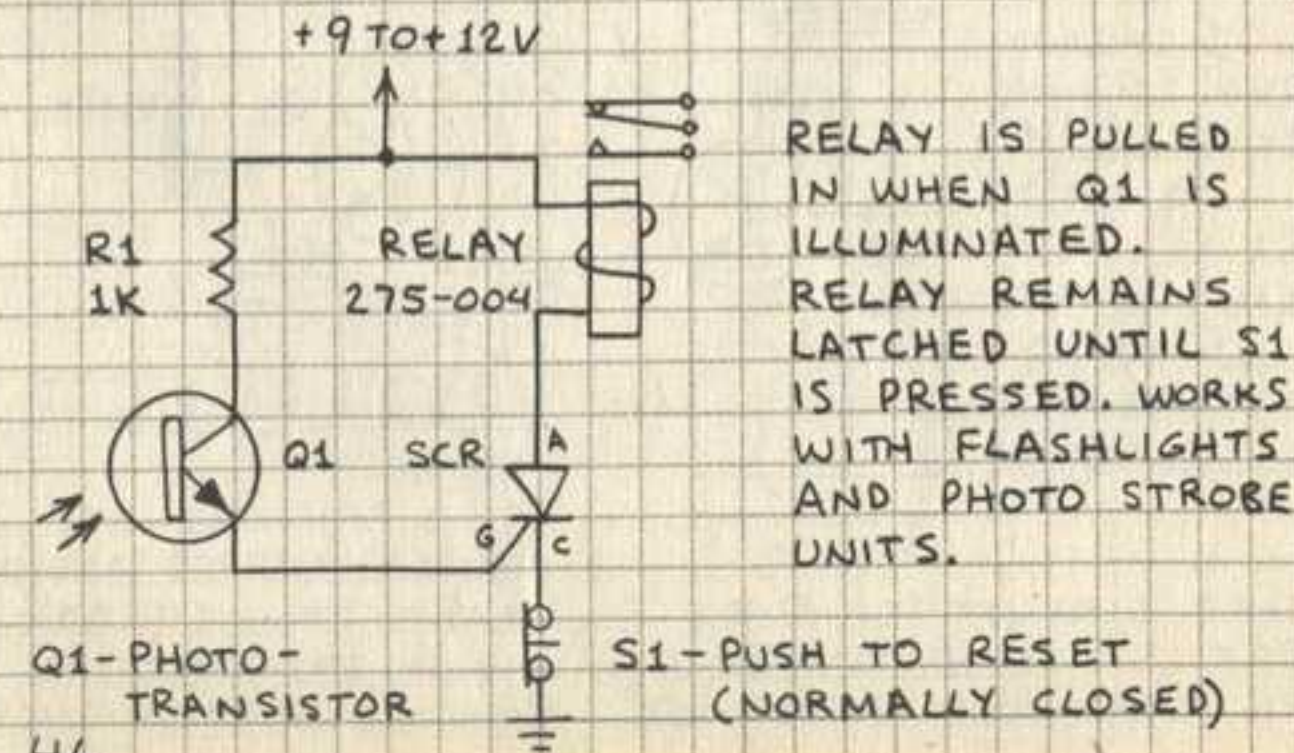 +9 TO + 12V
R1
1K
RELAY
275-004
RELAY IS PULLED
IN WHEN Q1 IS
ILLUMINATED.
RELAY REMAINS
LATCHED UNTIL S1
IS PRESSED. WORKS
WITH FLASHLIGHTS
AND PHOTO STROBE
UNITS.
Q1
SCR
A
G
C
Q1-PHOTO-
TRANSISTOR
S1-PUSH TO RESET
(NORMALLY CLOSED)